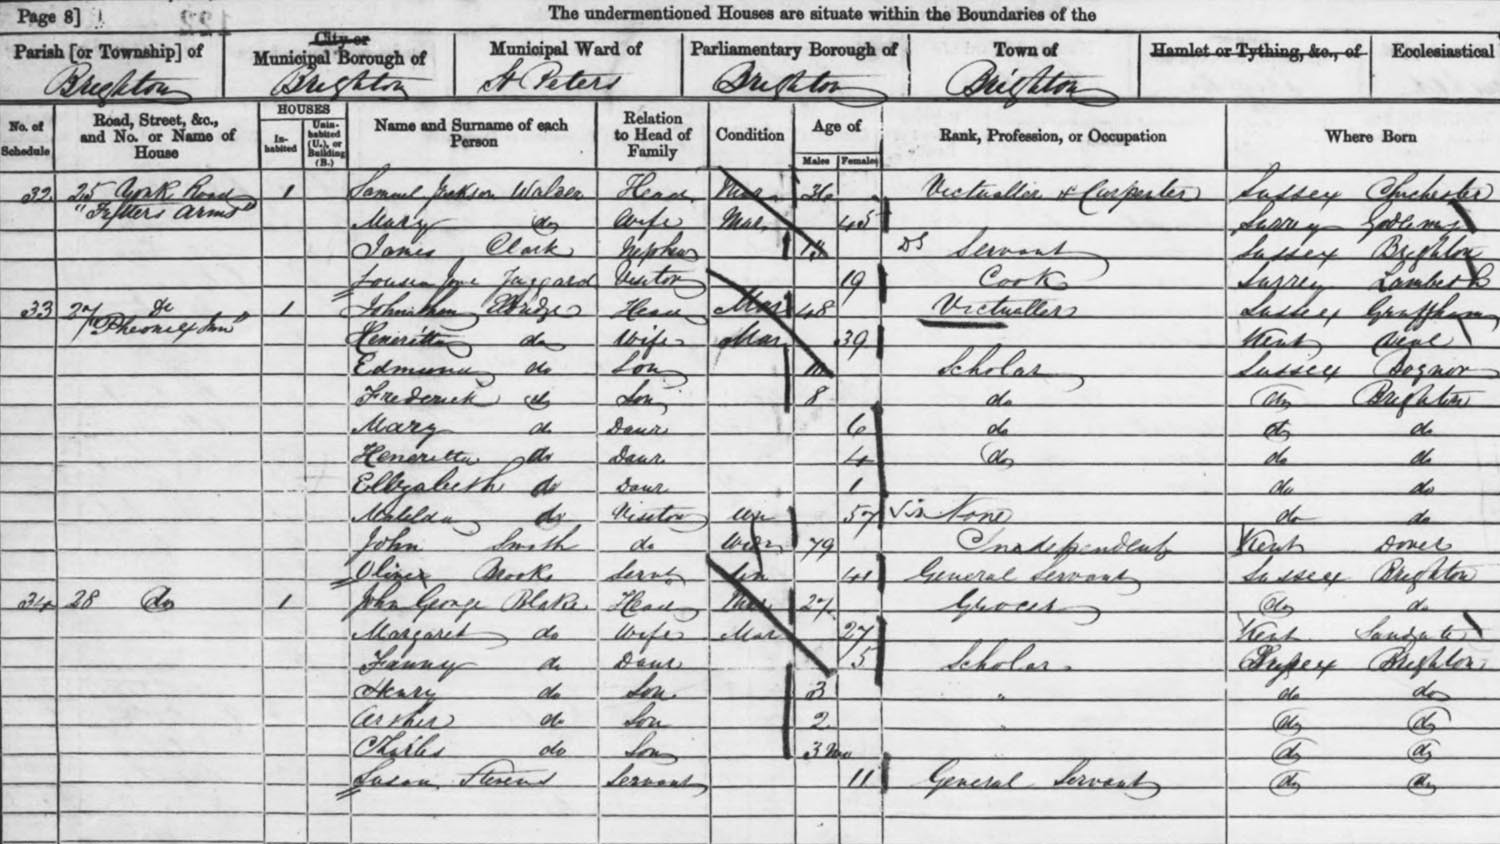 Page 8]
The undermentioned Houses are situate within the Boundaries of the
Parish [or Township] of
City or
Municipal Borough of
Municipal Ward of
Parliamentary Borough of
Town of
Hamlet or Tything, &c., of
Ecclesiastical
Brighton Brighton St Peters Brighton Brighton
No. of Schedule
Road, Street, &c., and No. or Name of House
HOUSES
In-habited
Unin-habited (U.), or Building (B.)
Name and Surname of each Person
Relation to Head of Family
Condition
Age of
Males
Females
Rank, Profession, or Occupation
Where Born
32 25 York Road 1 Samuel Jackson Head Mar 36 Victualler & Carpenter Sussex Chichester
Arms" Mary do Wife Mar 45 Surrey
James Clark Nephew Servant Sussex Brighton
Louisa Jane Jaggard Visitor 19 Cook Surrey Lambeth
33 27 do 1 Johnathan Eldridge Head Mar 48 Victualler Sussex Graffham
"Pheonix Inn" Henerietta do Wife Mar 39 Kent
Edmund do Son Scholar Sussex Bognor
Frederick do Son 8 do do Brighton
Mary do Daur 6 do do do
Heneretta do Daur 4 do do do
Ellizabeth do Daur 1 do do
Matilda do Visitor Un 57 None do do
John Smith do Widr 79 Independent Kent Dover
Brooks Servt Un 41 General Servant Sussex Brighton
34 28 do 1 John George Blake Head Mar 27 Grocer do do
Margaret do Wife Mar 27 Kent Sandgate
Fanny do Daur 5 Scholar Sussex Brighton
Henry do Son 3 " do do
Arther do Son 2 do do
Charles do Son 3 mo do do
Susan Stevens Servant 11 General Servant do do